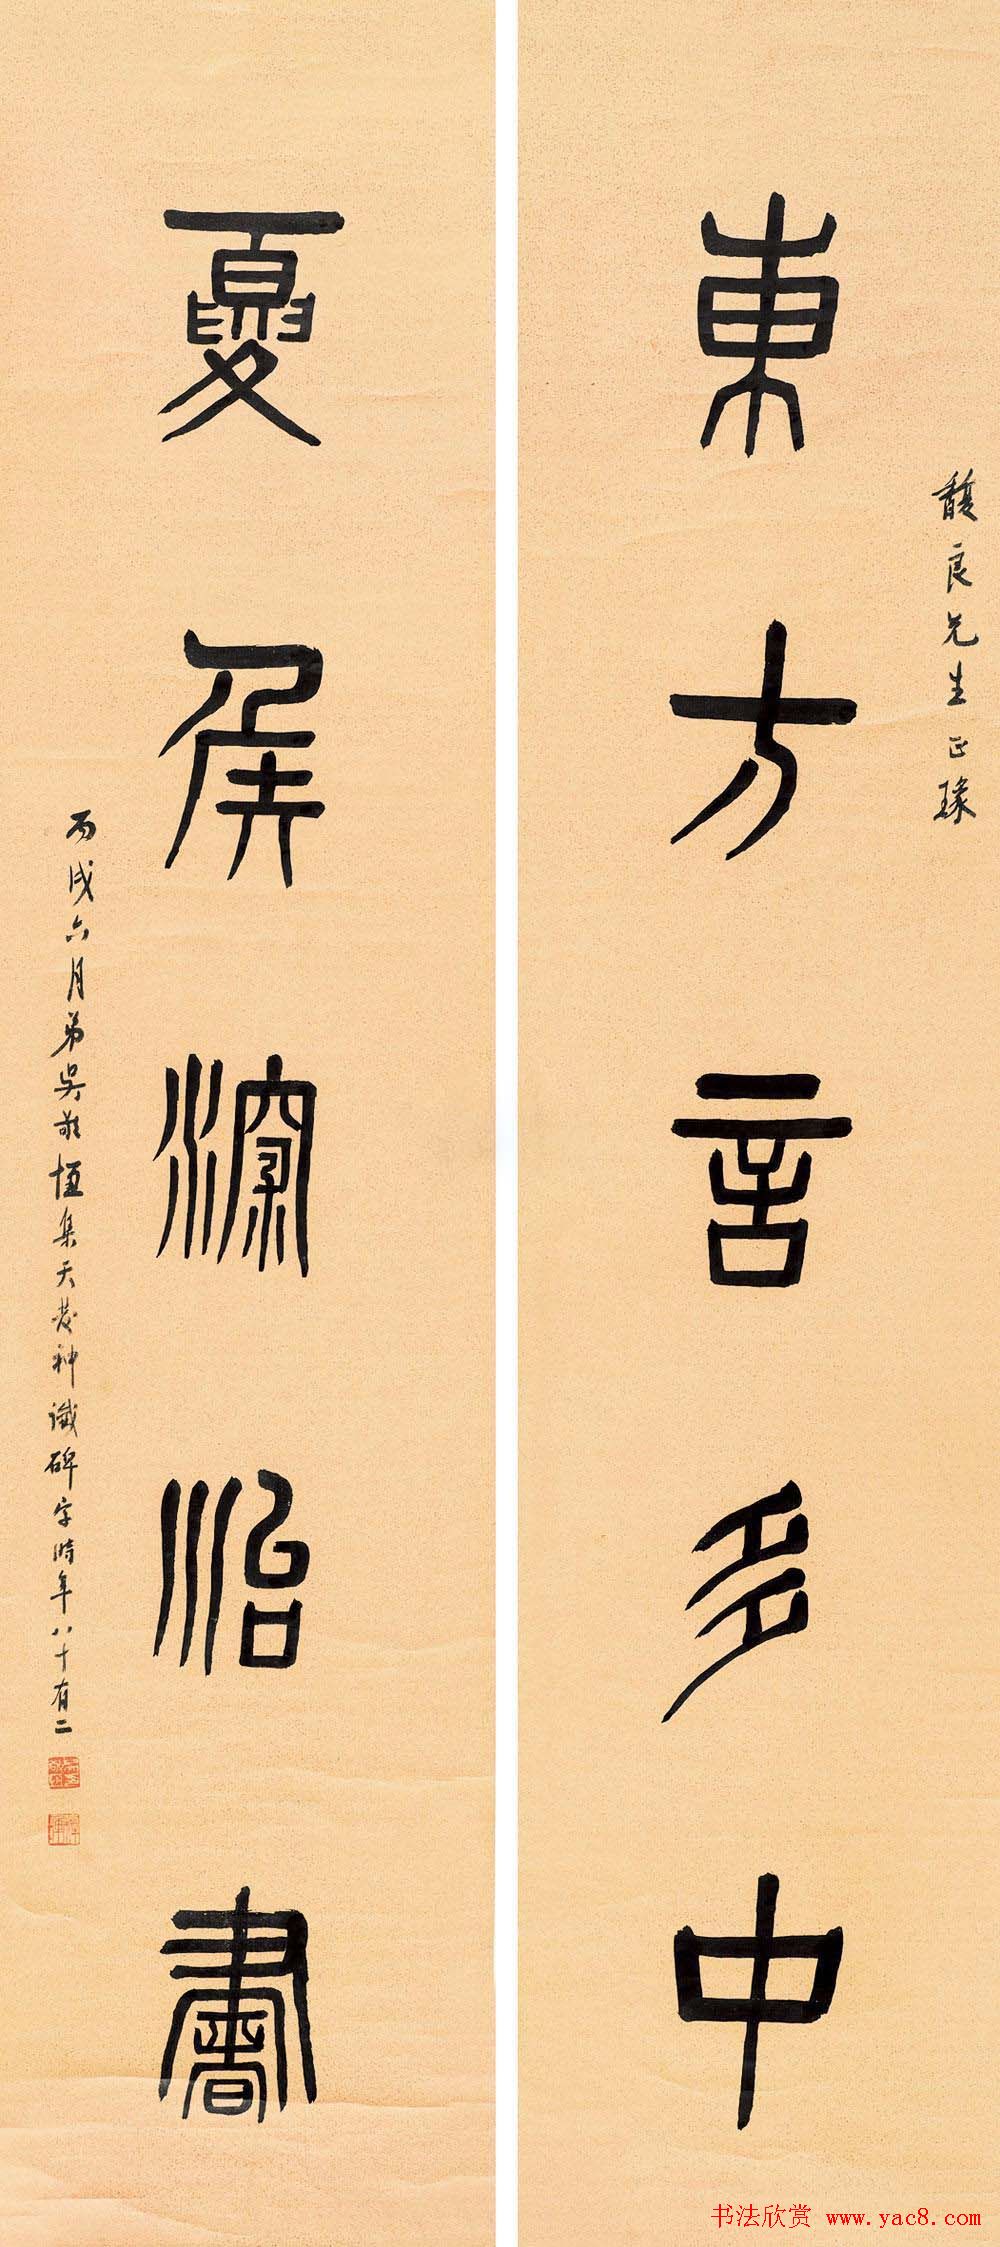 馥良先生正瑑
東方言多中
夏矦深治書
丙戌六月弟吳敬恆集天發神讖碑字時年八十有二
书法欣赏 www.yac8.com